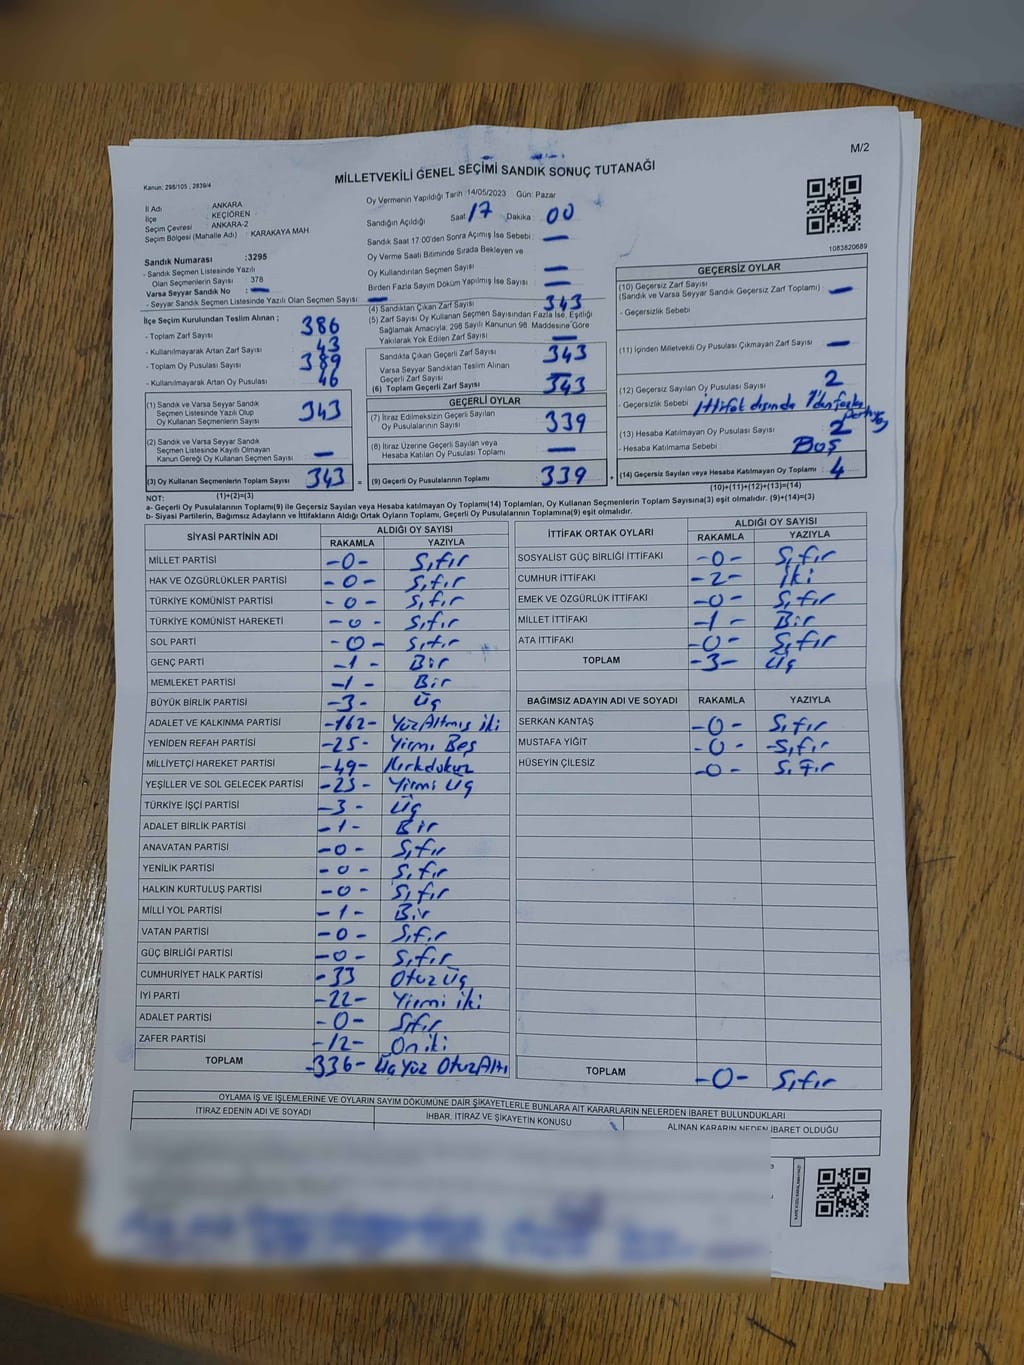 M/2
MİLLETVEKİLİ GENEL SEÇİMİ SANDIK SONUÇ TUTANAĞI
Kanun: 298/105 , 2839/4
İl Adı : ANKARA
İlçe : KEÇİÖREN
Seçim Çevresi : ANKARA-2
Seçim Bölgesi (Mahalle Adı) : KARAKAYA MAH
Sandık Numarası :3295
- Sandık Seçmen Listesinde Yazılı
Olan Seçmenlerin Sayısı : 378
Varsa Seyyar Sandık No : —
- Seyyar Sandık Seçmen Listesinde Yazılı Olan Seçmen Sayısı: —
İlçe Seçim Kurulundan Teslim Alınan ;
- Toplam Zarf Sayısı : 386
- Kullanılmayarak Artan Zarf Sayısı : 43
- Toplam Oy Pusulası Sayısı : 389
- Kullanılmayarak Artan Oy Pusulası : 46
(1) Sandık ve Varsa Seyyar Sandık
Seçmen Listesinde Yazılı Olup
Oy Kullanan Seçmenlerin Sayısı : 343
(2) Sandık ve Varsa Seyyar Sandık
Seçmen Listesinde Kayıtlı Olmayan
Kanun Gereği Oy Kullanan Seçmen Sayısı : —
(3) Oy Kullanan Seçmenlerin Toplam Sayısı : 343 =
Oy Vermenin Yapıldığı Tarih :14/05/2023 Gün: Pazar
Sandığın Açıldığı Saat : 17 Dakika : 00
Sandık Saat 17.00'den Sonra Açımış İse Sebebi : —
Oy Verme Saati Bitiminde Sırada Bekleyen ve
Oy Kullandırılan Seçmen Sayısı : —
Birden Fazla Sayım Döküm Yapılmış İse Sayısı : —
(4) Sandıktan Çıkan Zarf Sayısı : 343
(5) Zarf Sayısı Oy Kullanan Seçmen Sayısından Fazla İse, Eşitliği
Sağlamak Amacıyla, 298 Sayılı Kanunun 98. Maddesine Göre
Yakılarak Yok Edilen Zarf Sayısı : —
Sandıkta Çıkan Geçerli Zarf Sayısı : 343
Varsa Seyyar Sandıktan Teslim Alınan
Geçerli Zarf Sayısı : —
(6) Toplam Geçerli Zarf Sayısı : 343
GEÇERLİ OYLAR
(7) İtiraz Edilmeksizin Geçerli Sayılan
Oy Pusulalarının Sayısı : 339
(8) İtiraz Üzerine Geçerli Sayılan veya
Hesaba Katılan Oy Pusulası Toplamı : —
(9) Geçerli Oy Pusulalarının Toplamı : 339 +
1083820689
GEÇERSİZ OYLAR
(10) Geçersiz Zarf Sayısı
(Sandık ve Varsa Seyyar Sandık Geçersiz Zarf Toplamı) : —
- Geçersizlik Sebebi :
(11) İçinden Milletvekili Oy Pusulası Çıkmayan Zarf Sayısı : —
(12) Geçersiz Sayılan Oy Pusulası Sayısı : 2
- Geçersizlik Sebebi : İttifak dışında 1'den fazla
(13) Hesaba Katılmayan Oy Pusulası Sayısı : 2
- Hesaba Katılmama Sebebi : Boş
(14) Geçersiz Sayılan veya Hesaba Katılmayan Oy Toplamı : 4
NOT: (1)+(2)=(3) (10)+(11)+(12)+(13)=(14)
a- Geçerli Oy Pusulalarının Toplamı(9) ile Geçersiz Sayılan veya Hesaba katılmayan Oy Toplamı(14) Toplamları, Oy Kullanan Seçmenlerin Toplam Sayısına(3) eşit olmalıdır. (9)+(14)=(3)
b- Siyasi Partilerin, Bağımsız Adayların ve İttifakların Aldığı Ortak Oyların Toplamı, Geçerli Oy Pusulalarının Toplamına(9) eşit olmalıdır.
SİYASİ PARTİNİN ADI ALDIĞI OY SAYISI
RAKAMLA YAZIYLA
MİLLET PARTİSİ -0- Sıfır
HAK VE ÖZGÜRLÜKLER PARTİSİ -0- Sıfır
TÜRKİYE KOMÜNİST PARTİSİ -0- Sıfır
TÜRKİYE KOMÜNİST HAREKETİ -0- Sıfır
SOL PARTİ -0- Sıfır
GENÇ PARTİ -1- Bir
MEMLEKET PARTİSİ -1- Bir
BÜYÜK BİRLİK PARTİSİ -3- Üç
ADALET VE KALKINMA PARTİSİ -162- YüzAltmış iki
YENİDEN REFAH PARTİSİ -25- Yirmi Beş
MİLLİYETÇİ HAREKET PARTİSİ -49- Kırkdokuz
YEŞİLLER VE SOL GELECEK PARTİSİ -23- Yirmi Üç
TÜRKİYE İŞÇİ PARTİSİ -3- Üç
ADALET BİRLİK PARTİSİ -1- Bir
ANAVATAN PARTİSİ -0- Sıfır
YENİLİK PARTİSİ -0- Sıfır
HALKIN KURTULUŞ PARTİSİ -0- Sıfır
MİLLİ YOL PARTİSİ -1- Bir
VATAN PARTİSİ -0- Sıfır
GÜÇ BİRLİĞİ PARTİSİ -0- Sıfır
CUMHURİYET HALK PARTİSİ -33 Otuz Üç
İYİ PARTİ -22- Yirmi iki
ADALET PARTİSİ -0- Sıfır
ZAFER PARTİSİ -12- On iki
TOPLAM -336- Üç Yüz OtuzAltı
İTTİFAK ORTAK OYLARI ALDIĞI OY SAYISI
RAKAMLA YAZIYLA
SOSYALİST GÜÇ BİRLİĞİ İTTİFAKI -0- Sıfır
CUMHUR İTTİFAKI -2- İki
EMEK VE ÖZGÜRLÜK İTTİFAKI -0- Sıfır
MİLLET İTTİFAKI -1- Bir
ATA İTTİFAKI -0- Sıfır
TOPLAM -3- Üç
BAĞIMSIZ ADAYIN ADI VE SOYADI RAKAMLA YAZIYLA
SERKAN KANTAŞ -0- Sıfır
MUSTAFA YİĞİT -0- -Sıfır
HÜSEYİN ÇİLESİZ -0- Sıfır
TOPLAM -0- Sıfır
OYLAMA İŞ VE İŞLEMLERİNE VE OYLARIN SAYIM DÖKÜMÜNE DAİR ŞİKAYETLERLE BUNLARA AİT KARARLARIN NELERDEN İBARET BULUNDUKLARI
İTİRAZ EDENİN ADI VE SOYADI İHBAR, İTİRAZ VE ŞİKAYETİN KONUSU ALINAN KARARIN NEDEN İBARET OLDUĞU